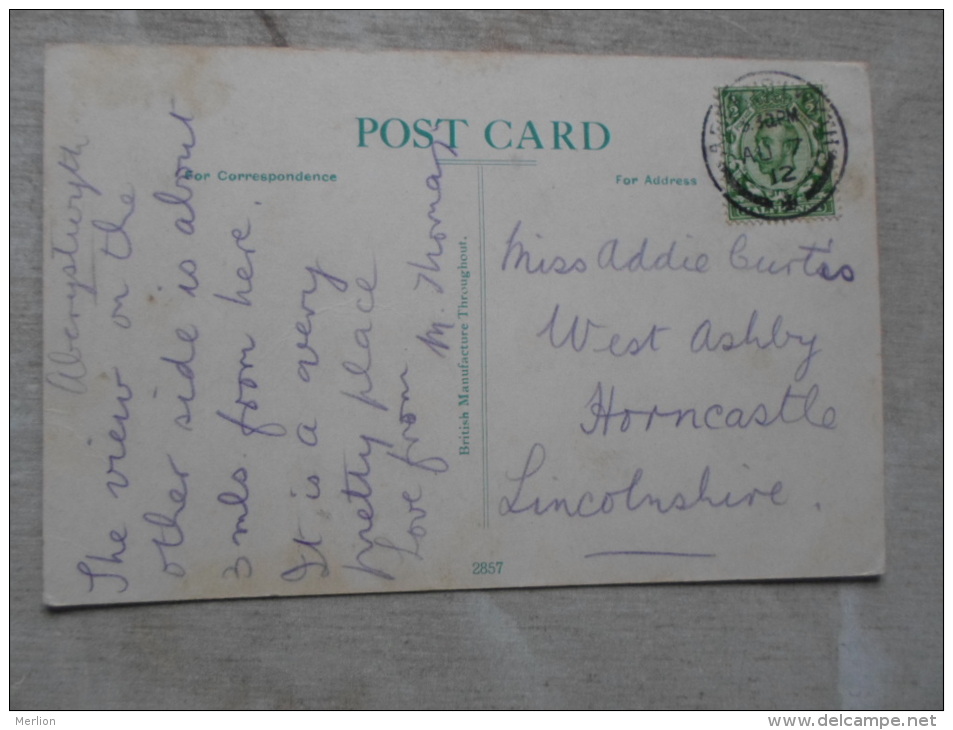 POST CARD
For Correspondence
For Address
Aberystwyth
The view on the
other side is about
3 mls. from here.
It is a very
pretty place
Love from
M. Thomas
British Manufacture Throughout.
5.30PM
AU 7
12
Miss Addie Curtis
West Ashby
Horncastle
Lincolnshire.
2857
Merlion
http://www.delcampe.net